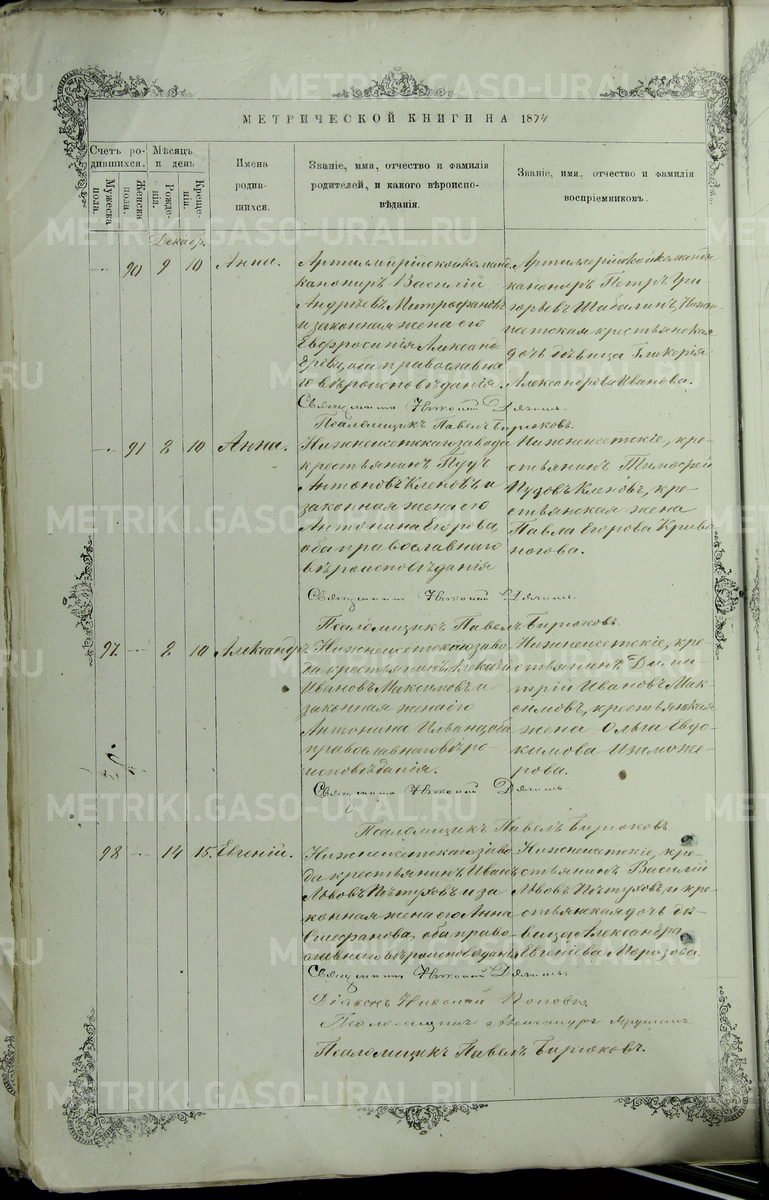 МЕТРИЧЕСКОЙ КНИГИ НА 1874
Счетъ ро-
дившихся.
Мужеска
пола.
Женска
пола.
Мѣсяцъ
и день
Рожде-
нія.
Креще-
нія.
Имена
родив-
шихся.
Званіе, имя, отчество и фамилія
родителей, и какого вѣроиспо-
вѣданія.
Званіе, имя, отчество и фамилія
воспріемниковъ.
Декабр.
90 9 10 Анна.
Артиллерійской команд
канониръ Василій
Андреевъ Митрофановъ
и законная жена его
Евфросинія Александ
рова, оба православна
го вѣроисповѣданія.
канониръ Петръ Гри
горьевъ Шабалинъ, Нижне
исетская крестьянская
дочь дѣвица Гликерія
Александрова Иванова.
Священникъ Николай
Псаломщикъ Павелъ Бирюковъ.
91 8 10 Анна.
Нижнеисетскаго завода
крестьянинъ Пудъ
Антоновъ Клековъ и
законная жена его
Антонина Егорова,
оба православнаго
вѣроисповѣданія
Нижнеисетскіе, кре-
стьянинъ Тимофей
Пудовъ Клековъ, кре-
стьянская жена
Павла Егорова Криво
ногова.
Священникъ Николай
Псаломщикъ Павелъ Бирюковъ.
97. 8 10 Александръ.
Нижнеисетскаго заво
да крестьянинъ Алексѣй
Ивановъ Максимовъ и
законная жена его
Антонина Иванова, оба
православнаго вѣро
исповѣданія.
Нижнеисетскіе, кре-
стьянинъ Дими
трій Ивановъ Мак-
симовъ, крестьянская
жена Ольга Евдо-
кимова Изможе-
рова.
Священникъ Николай
Псаломщикъ Павелъ Бирюковъ
98 14 15. Евгеній.
Нижнеисетскаго заво
да крестьянинъ Иванъ
Львовъ Пѣтуховъ и за
конная жена его Анна
Стефанова, оба право-
славнаго вѣроисповѣданія
Нижнеисетскіе, кре-
стьянинъ Василій
Львовъ Пѣтуховъ, и кре
стьянская дочь дѣ-
вица Александра
Евгеніева Морозова.
Священникъ Николай
Діаконъ Николай Поповъ
Псаломщикъ Александръ
Псаломщикъ Павелъ Бирюковъ.
METRIKI.GASO-URAL.RU